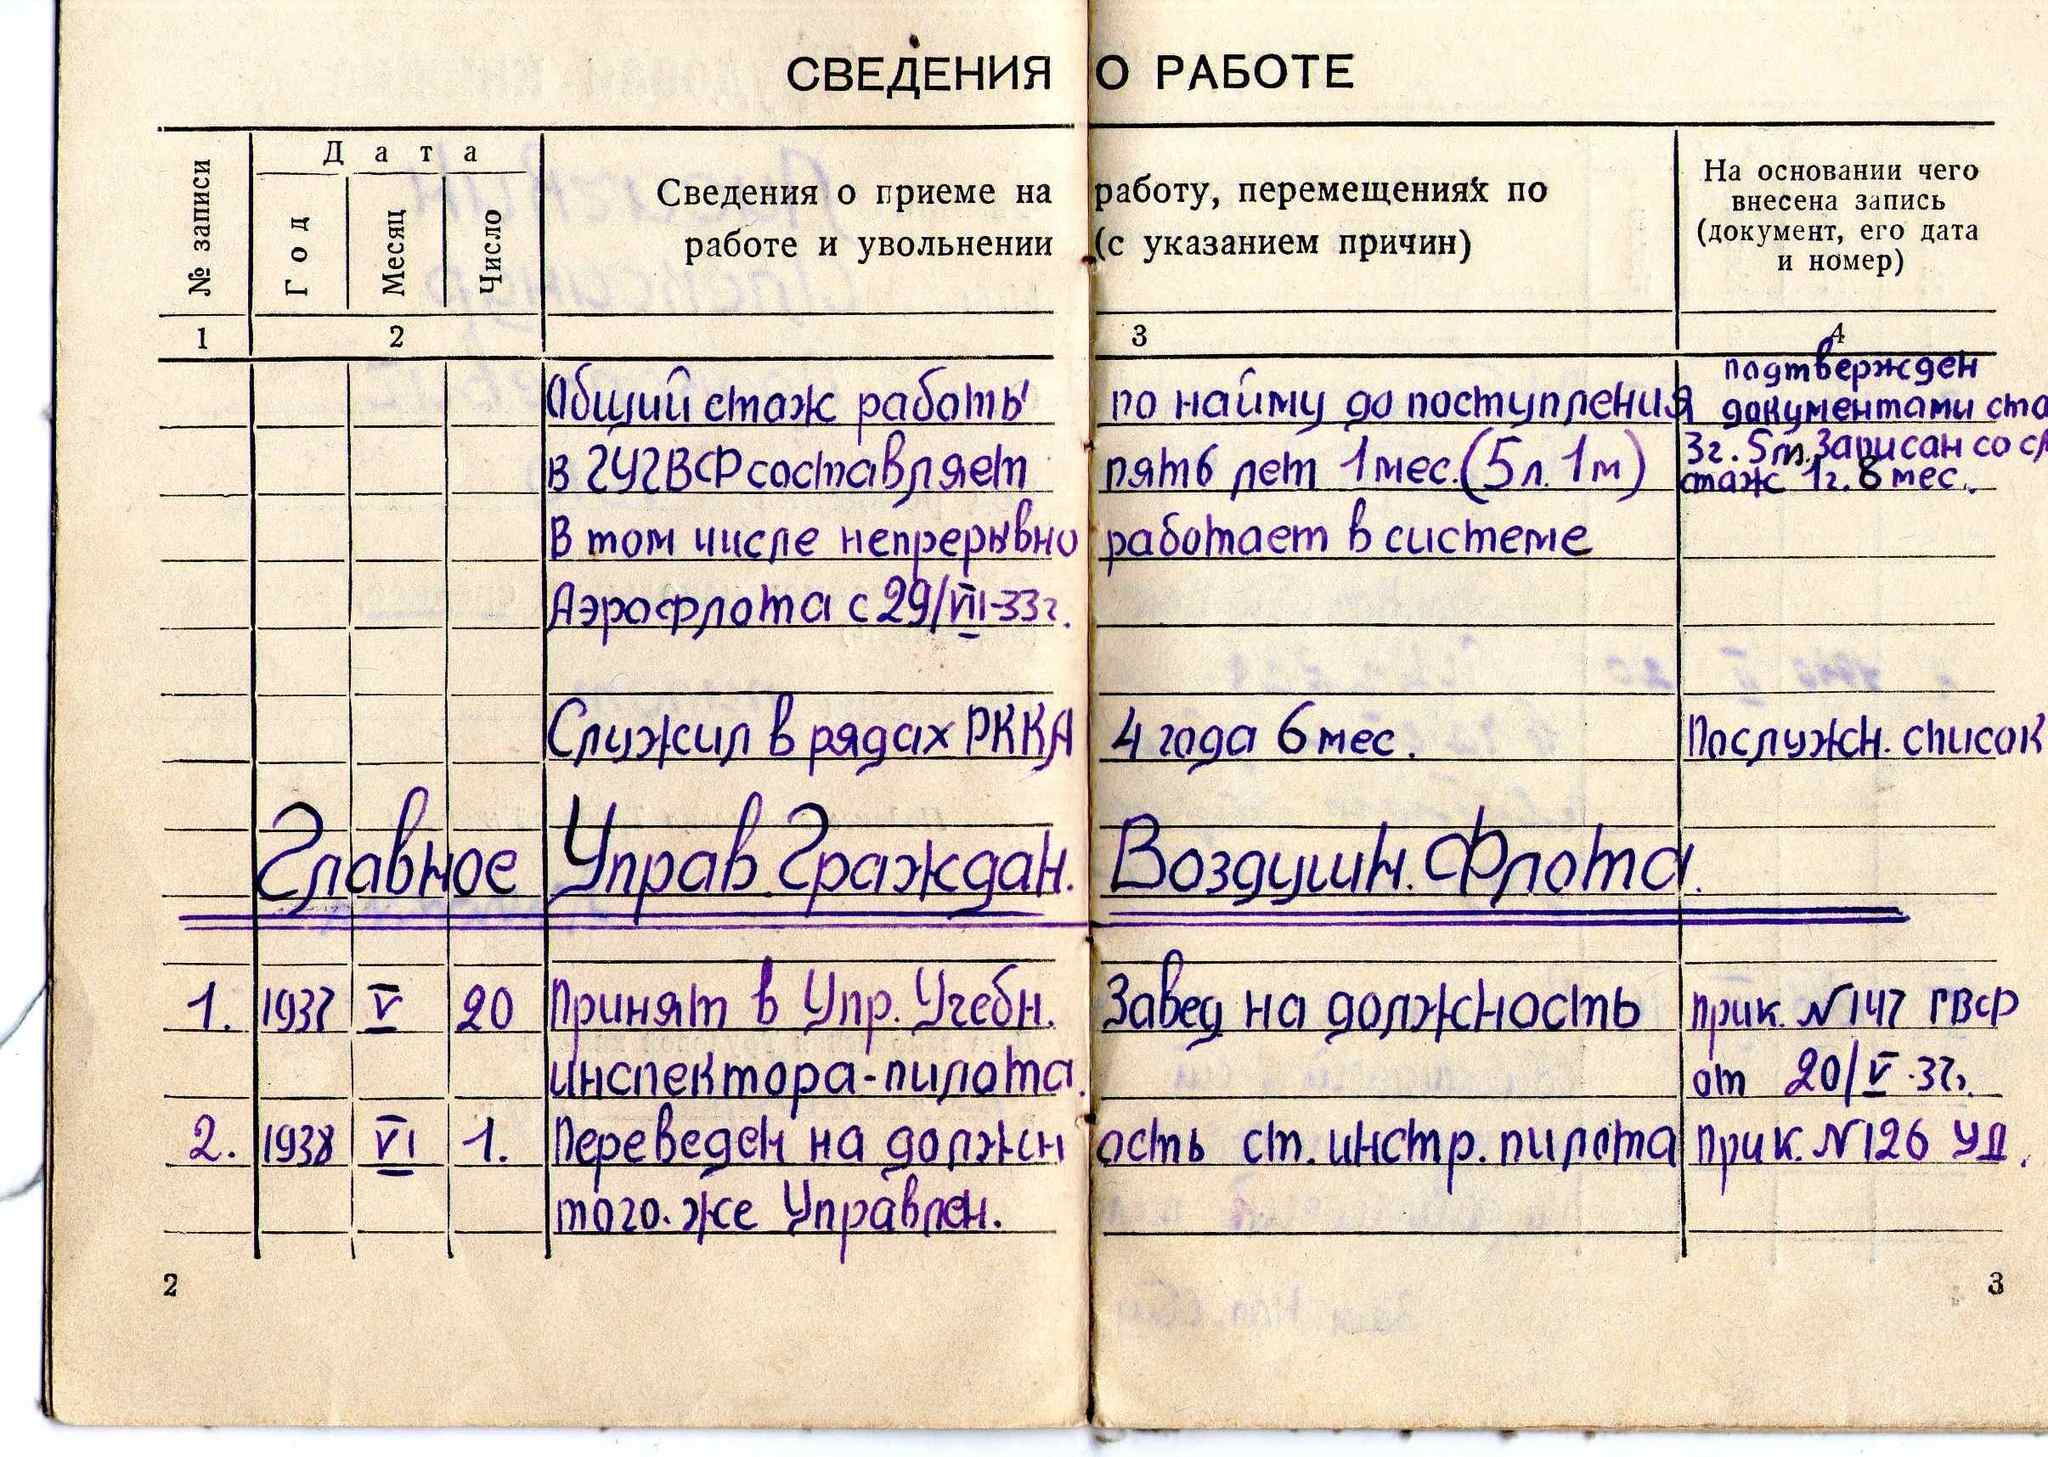 СВЕДЕНИЯ О РАБОТЕ
№ записи
Дата
Год
Месяц
Число
Сведения о приеме на работу, перемещениях по
работе и увольнении (с указанием причин)
На основании чего
внесена запись
(документ, его дата
и номер)
1 2 3 4
Общий стаж работы по найму до поступления
подтвержден
документами ста
в ГУГВФ составляет пять лет 1 мес. (5 л. 1 м)
3 г. 5 m. Записан со сл
стаж 1 г. 8 мес.
В том числе непрерывно работает в системе
Аэрофлота с 29/VII-33г.
Служил в рядах РККА 4 года 6 мес. Послужн. список
Главное Управ Граждан. Воздушн. Флота.
1. 1937 V 20 Принят в Упр. Учебн. Завед на должность Прик. N147 ГВФ
инспектора-пилота. от 20/V.37г.
2. 1938 VI 1. Переведен на должн ость ст. инстр. пилота Прик. N126 УД.
того-же Управлен.
2
3